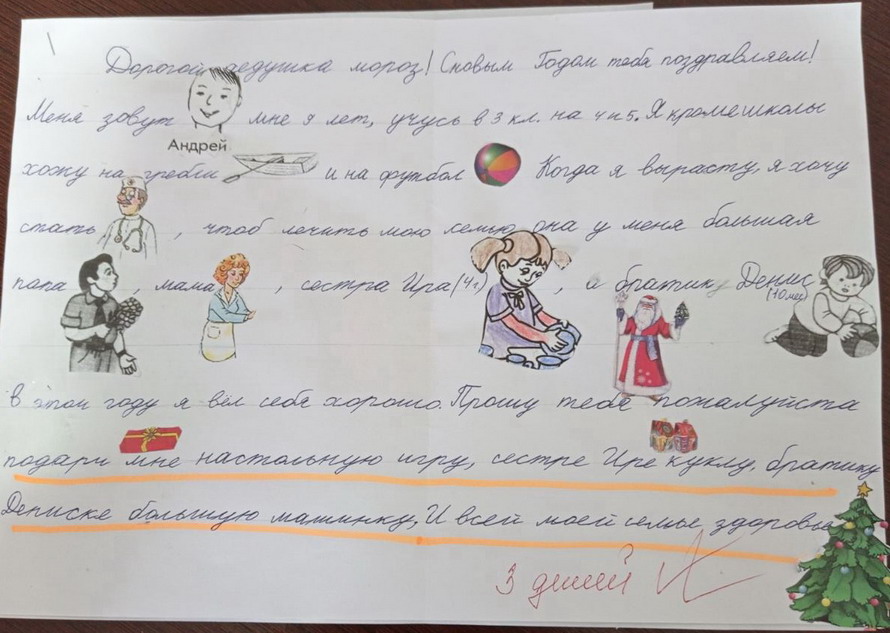 Дорогой дедушка мороз! Сновым Годом тебя поздравляем!
Меня зовут мне 9 лет, учусь в 3 кл. на 4 и 5. Я кроме школы
Андрей
хожу на гребли и на футбол Когда я вырасту, я хочу
стать , чтоб лечить мою семью она у меня большая
папа , мама , сестра Ира (4г) , и братик Денис
(10 мес)
В этом году я вел себя хорошо. Прошу тебя пожалуйста
подари мне настольную игру, сестре Ире куклу, братику
Дениске большую машинку, И всей моей семье здоровья
3 детей